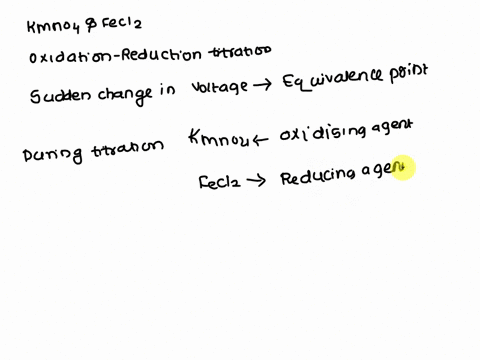 KmnO4 & Fecl2
Oxidation-Reduction titration
Sudden change in Voltage → Equivalence point
During titration KmnO4 ← oxidising agent
Fecl2 → Reducing agent